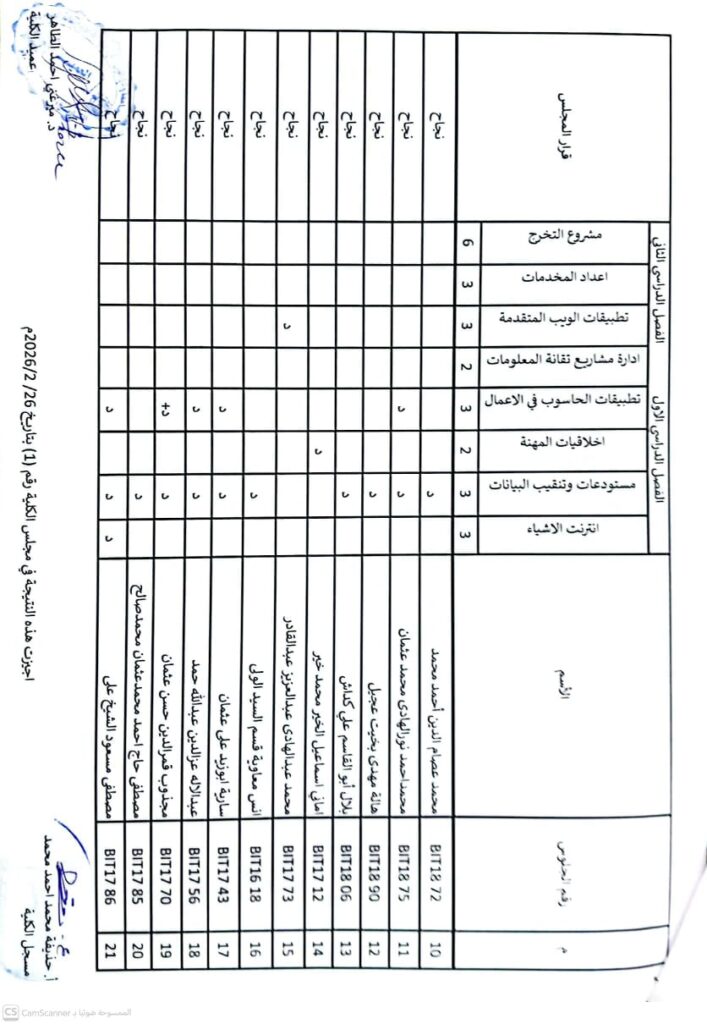 م رقم الجلوس الأسم انترنت الاشياء مستودعات وتنقيب البيانات اخلاقيات المهنة تطبيقات الحاسوب في الاعمال ادارة مشاريع تقانة المعلومات تطبيقات الويب المتقدمة اعداد المخدمات مشروع التخرج قرار المجلس
الفصل الدراسي الاول الفصل الدراسي الثاني
3 3 2 3 2 3 3 6
10 BIT18 72 محمد عصام الدين أحمد محمد د نجاح
11 BIT18 75 محمداحمد نورالهادى محمد عثمان د د نجاح
12 BIT18 90 هالة مهدى بخيت عجيل د نجاح
13 BIT18 06 بلال أبو القاسم علي كداش د نجاح
14 BIT17 12 اماني اسماعيل الخير محمد خير د نجاح
15 BIT17 73 محمد عبدالهادى عبدالعزيز عبدالقادر د نجاح
16 BIT16 18 انس معاوية قسم السيد الولى د نجاح
17 BIT17 43 سارية ابوزيد على عثمان د د نجاح
18 BIT17 56 عبدالاله عزالدين عبدالله حمد د د نجاح
19 BIT17 70 مجذوب قمرالدين حسن عثمان د د+ نجاح
20 BIT17 85 مصطفى حاج احمد محمدعثمان محمدصالح د نجاح
21 BIT17 86 مصطفى مسعود الشيخ على د د د نجاح
اجيزت هذه النتيجة في مجلس الكلية رقم (1) بتاريخ 26/ 2/2026م
أ. حذيفة محمد احمد محمد
مسجل الكلية
د. ميرغني احمد الطاهر
عميد الكلية
CS CamScanner الممسوحة ضوئيا بـ